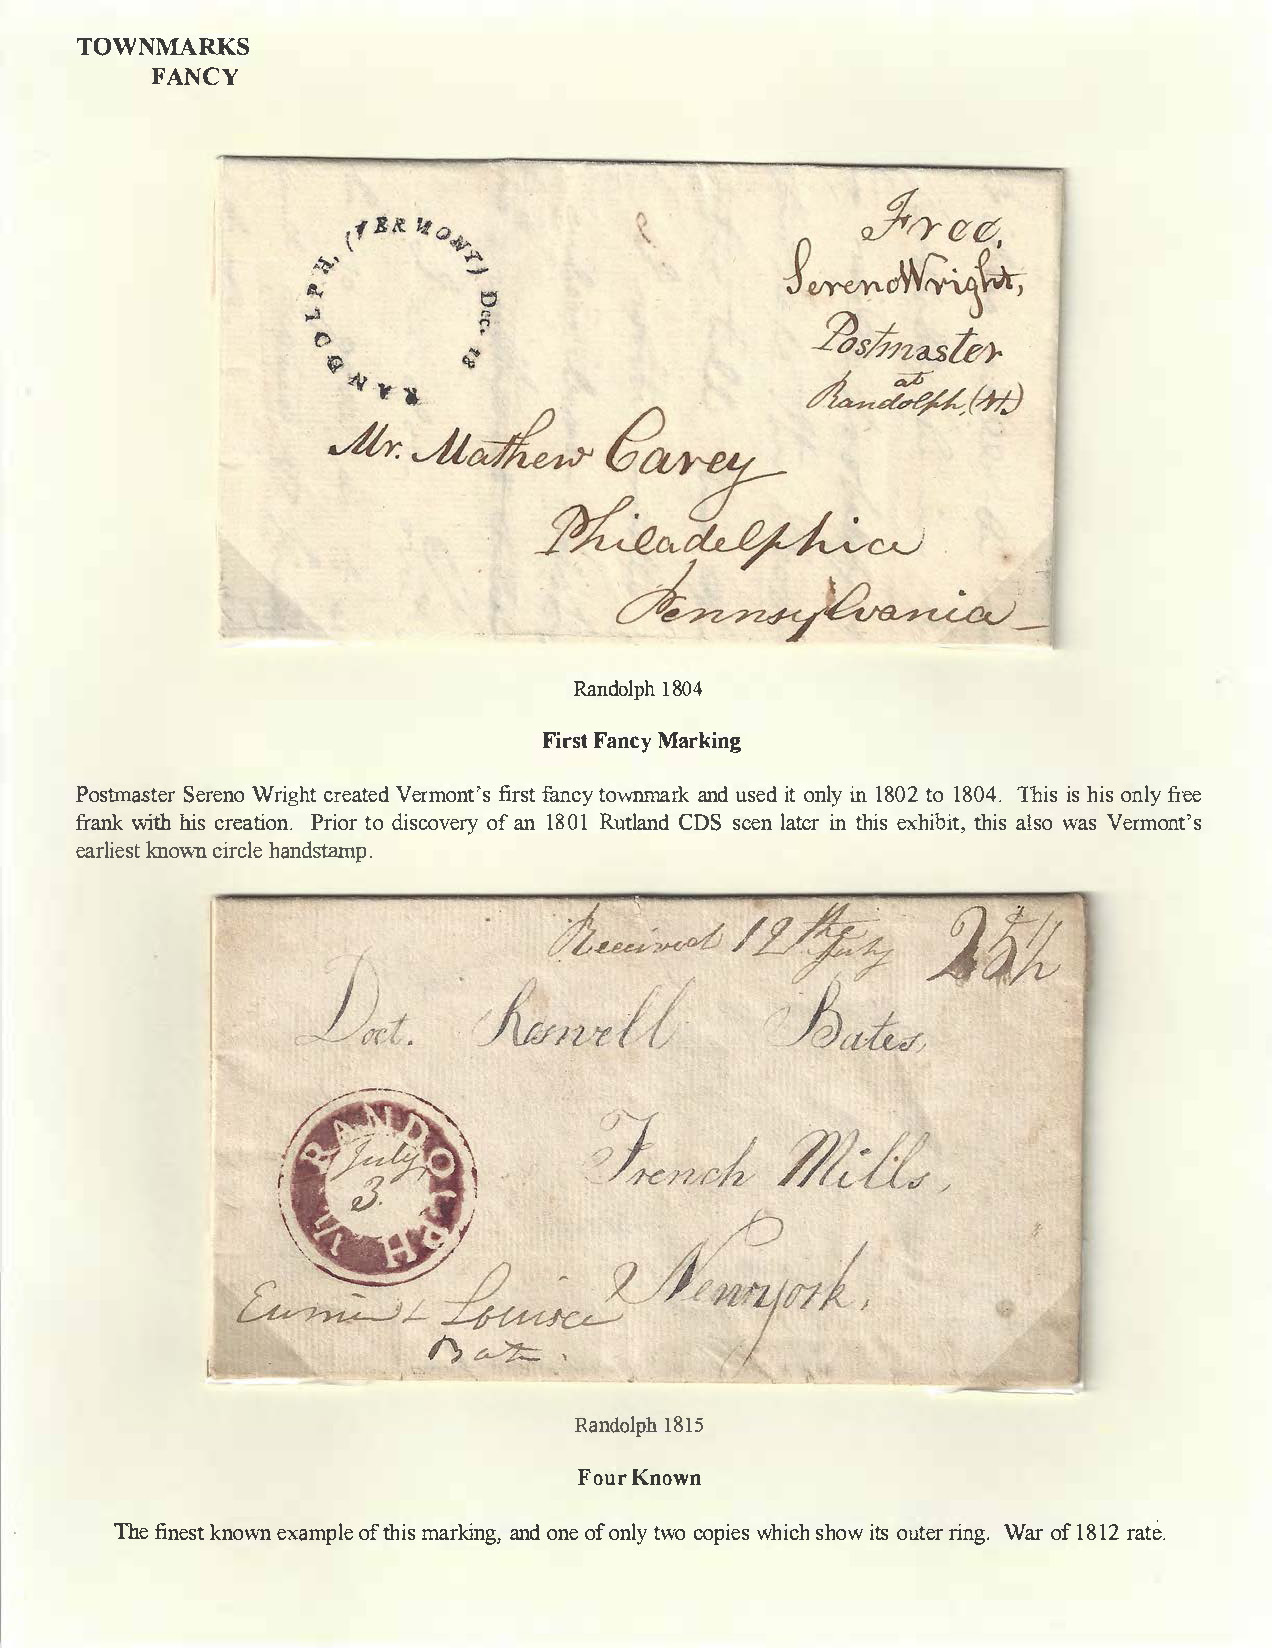 TOWNMARKS
FANCY
RANDOLPH, (VERMONT) Dec. 18
Free,
Sereno Wright,
Postmaster
at
Randolph, (Vt.)
Mr. Mathew Carey
Philadelphia
Pennsylvania
Randolph 1804
First Fancy Marking
Postmaster Sereno Wright created Vermont's first fancy townmark and used it only in 1802 to 1804. This is his only free
frank with his creation. Prior to discovery of an 1801 Rutland CDS seen later in this exhibit, this also was Vermont's
earliest known circle handstamp.
Received 12th July
Doct. Roswell Bates,
RANDOLPH Vt
July
3.
French Mills,
Newyork.
Louisa
Randolph 1815
Four Known
The finest known example of this marking, and one of only two copies which show its outer ring. War of 1812 rate.